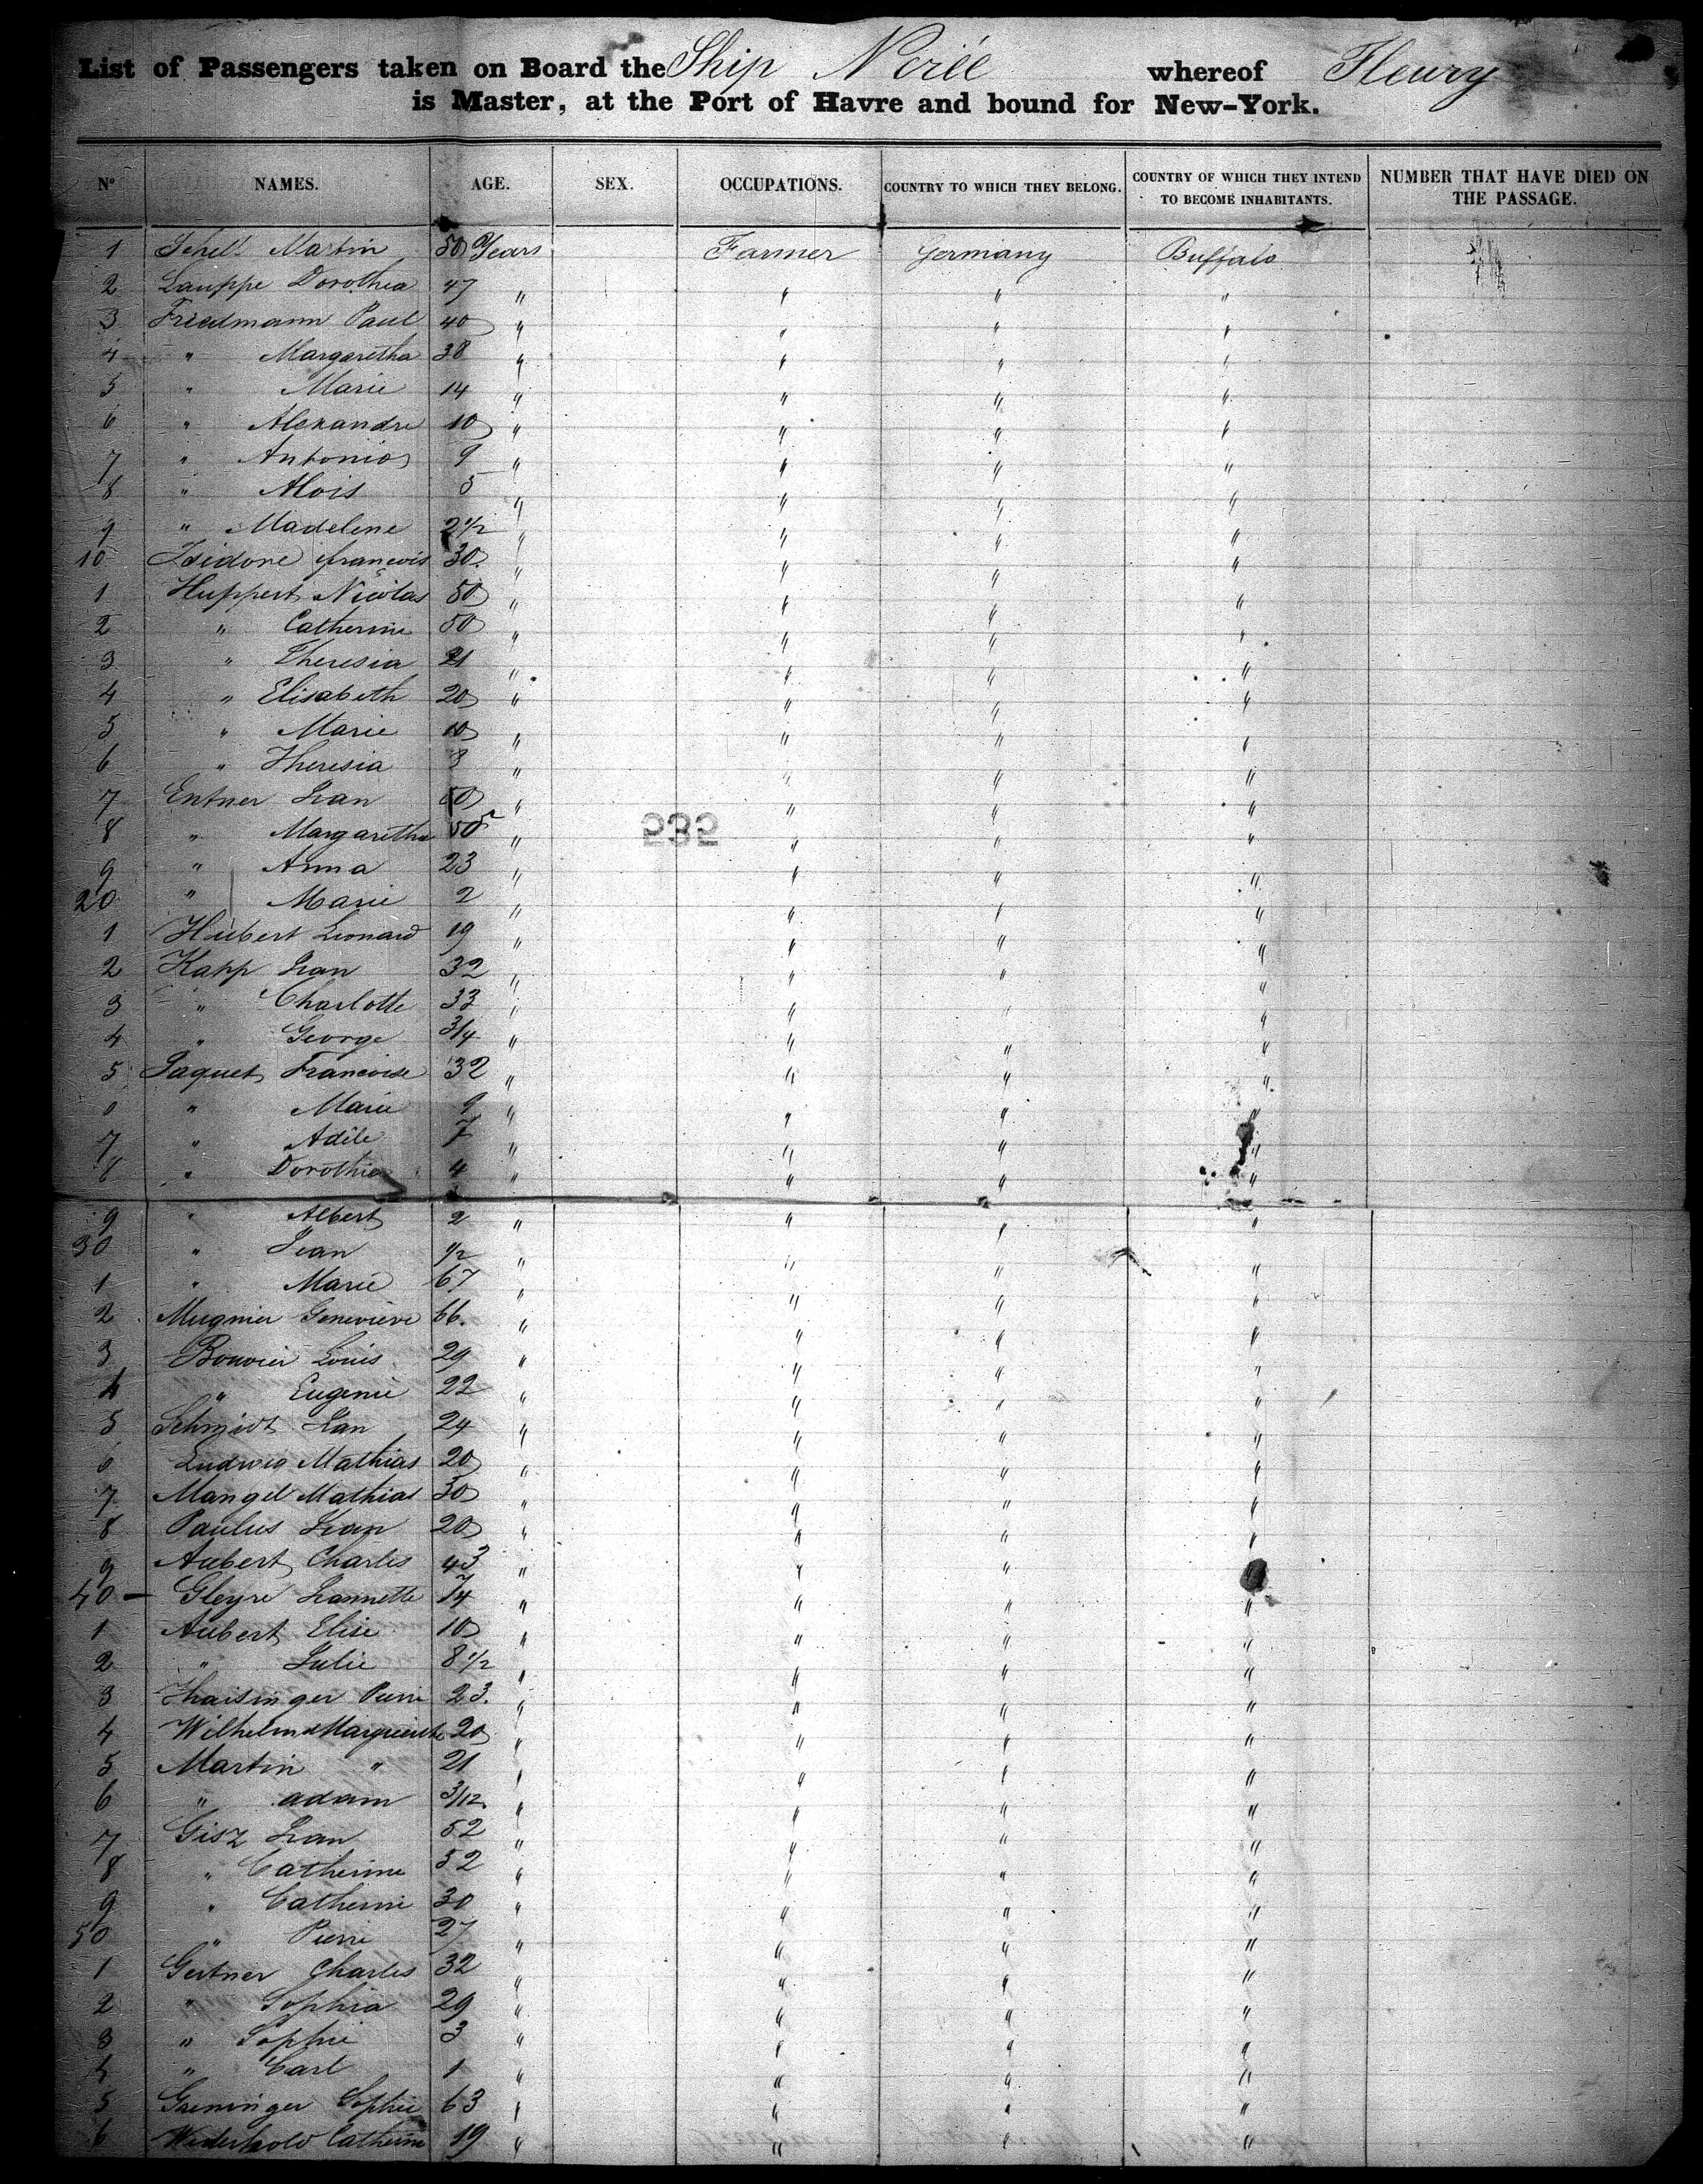 List of Passengers taken on Board the Ship Nerée whereof Fleury
is Master, at the Port of Havre and bound for New-York.
N° NAMES. AGE. SEX. OCCUPATIONS. COUNTRY TO WHICH THEY BELONG. COUNTRY OF WHICH THEY INTEND TO BECOME INHABITANTS. NUMBER THAT HAVE DIED ON THE PASSAGE.
1 Schell Martin 50 Years Farmer Germany Buffalo
2 Lauppe Dorothea 47 " " " "
3 Friedmann Paul 40 " " " "
4 " Margaretha 38 " " " "
5 " Marie 14 " " " "
6 " Alexandre 10 " " " "
7 " Antonio 9 " " " "
8 " Alois 5 " " " "
9 " Madelene 2 1/2 " " " "
10 Isidore françois 30 " " " "
1 Huppert Nicolas 50 " " " "
2 " Catherine 50 " " " "
3 " Theresia 21 " " " "
4 " Elisabeth 20 " " " "
5 " Marie 10 " " " "
6 " Theresia 8 " " " "
7 Entner Jean 50 " " " "
8 " Margaretha 50 " " " "
535
9 " Anna 23 " " " "
20 " Marie 2 " " " "
1 Hubert Leonard 19 " " " "
2 Kapp Jean 32 " " " "
3 " Charlotte 33 " " "
4 " George 3/4 " " " "
5 Jaquet Francoise 32 " " " "
6 " Marie 9 " " " "
7 " Adéle 7 " " " "
8 " Dorothie 4 " " " "
9 " Albert 2 " " " "
30 " Jean 1/2 " " " "
1 " Marie 67 " " " "
2 Mugnier Genevieve 66. " " " "
3 Bouvier Louis 29 " " " "
4 " Eugenie 22 " " " "
5 Schmidt Jean 24 " " " "
6 Ludwig Mathias 20 " " " "
7 Mangel Mathias 30 " " " "
8 Paulus Jean 20 " " " "
9 Aubert Charles 43 " " "
40 Gleyre Jeannette 74 " " " "
1 Aubert Elise 10 " " " "
2 " Julie 8 1/2 " " " "
3 Thaisinger Pierre 23. " " " "
4 Wilhelm Marguerithe 20 " " " "
5 Martin " 21 " " " "
6 " adam 3/12 " " " "
7 Gisz Jean 52 " " " "
8 " Catherine 52 " " " "
9 " Catherine 30 " " " "
50 " Pierre 27 " " " "
1 Gertner Charles 32 " " " "
2 " Sophia 29 " " " "
3 " Sophie 3 " " " "
4 " Carl 1 " " " "
5 Sophie 63 " " " "
6 Wiederhold Catherine 19 " " " "